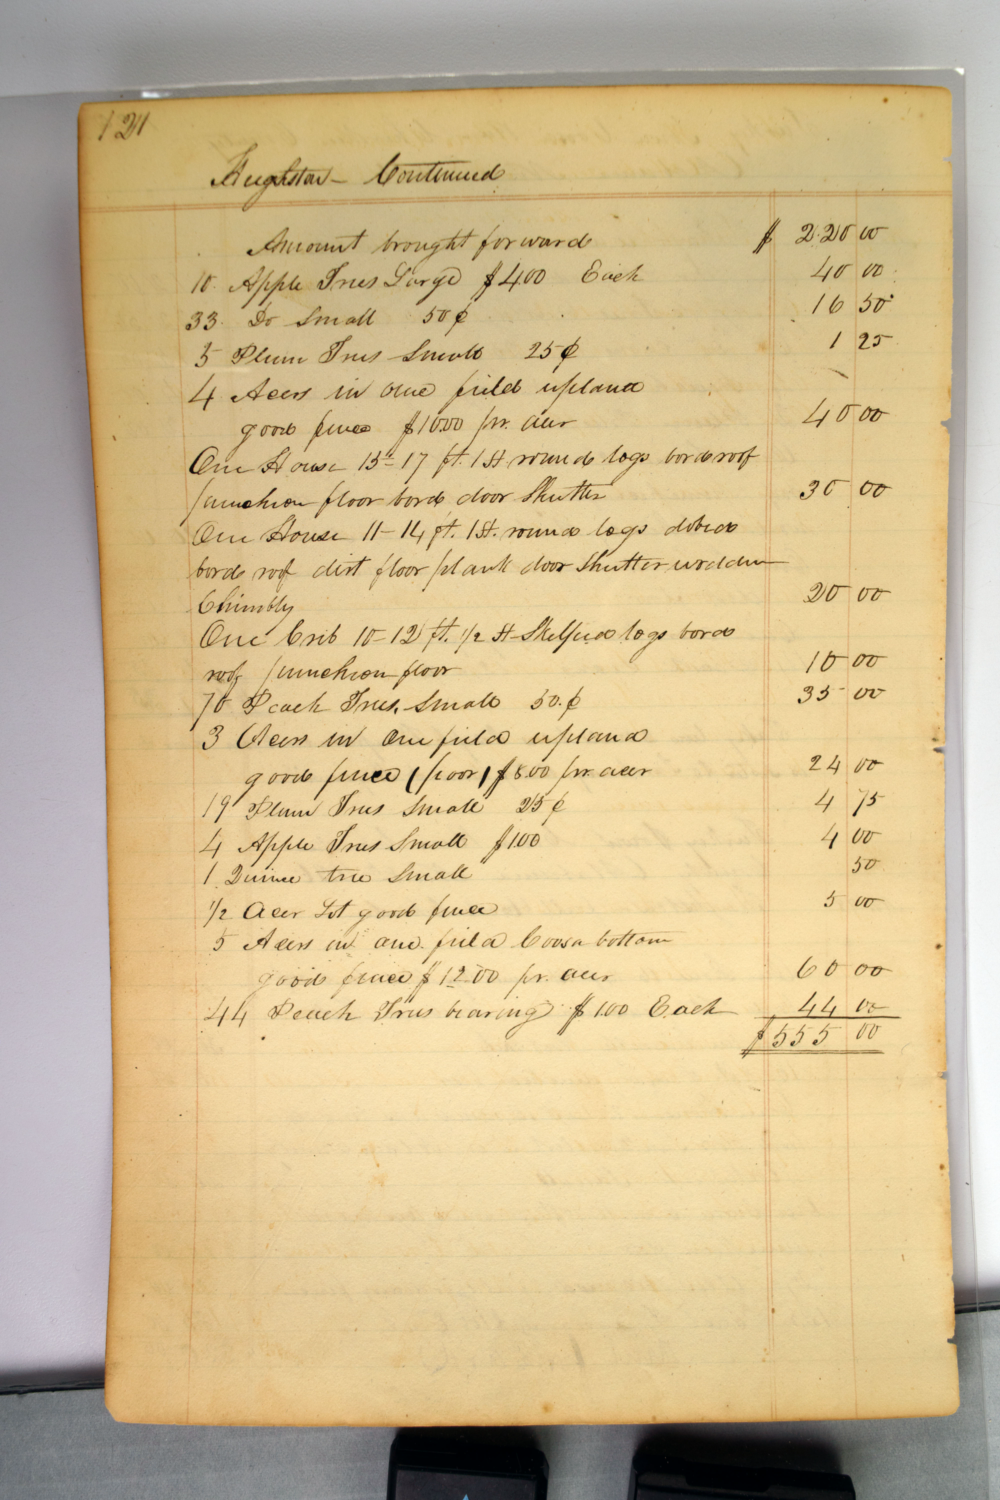 121
Continued
Amount brought forward $ 220 00
10 Apple Trees Large $4.00 Each 40 00
33 Do Small 50¢ 16 50
5 Plum Trees Small 25¢ 1 25
4 Acers in one field upland
good fence $10.00 pr. acer 40 00
One House 15-17 ft. 1 St. round logs bord roof
puncheon floor bord door Shutter 30 00
One House 11-14 ft. 1 St. round logs dobed
bord roof dirt floor plank door Shutter wooden
Chimbly 20 00
One Crib 10-12 ft. 1/2 St. Skelped logs bord
roof puncheon floor 10 00
70 Peach Trees Small 50¢ 35 00
3 Acers in one field upland
good fence (poor) $8.00 pr. acer 24 00
19 Plum Trees Small 25¢ 4 75
4 Apple Trees Small $1.00 4 00
1 Quince tree Small 50
1/2 Acer Lot good fence 5 00
5 Acers in one field Coosa bottom
good fence $12.00 pr. acer 60 00
44 Peach Trees bearing $1.00 Each 44 00
$ 555 00